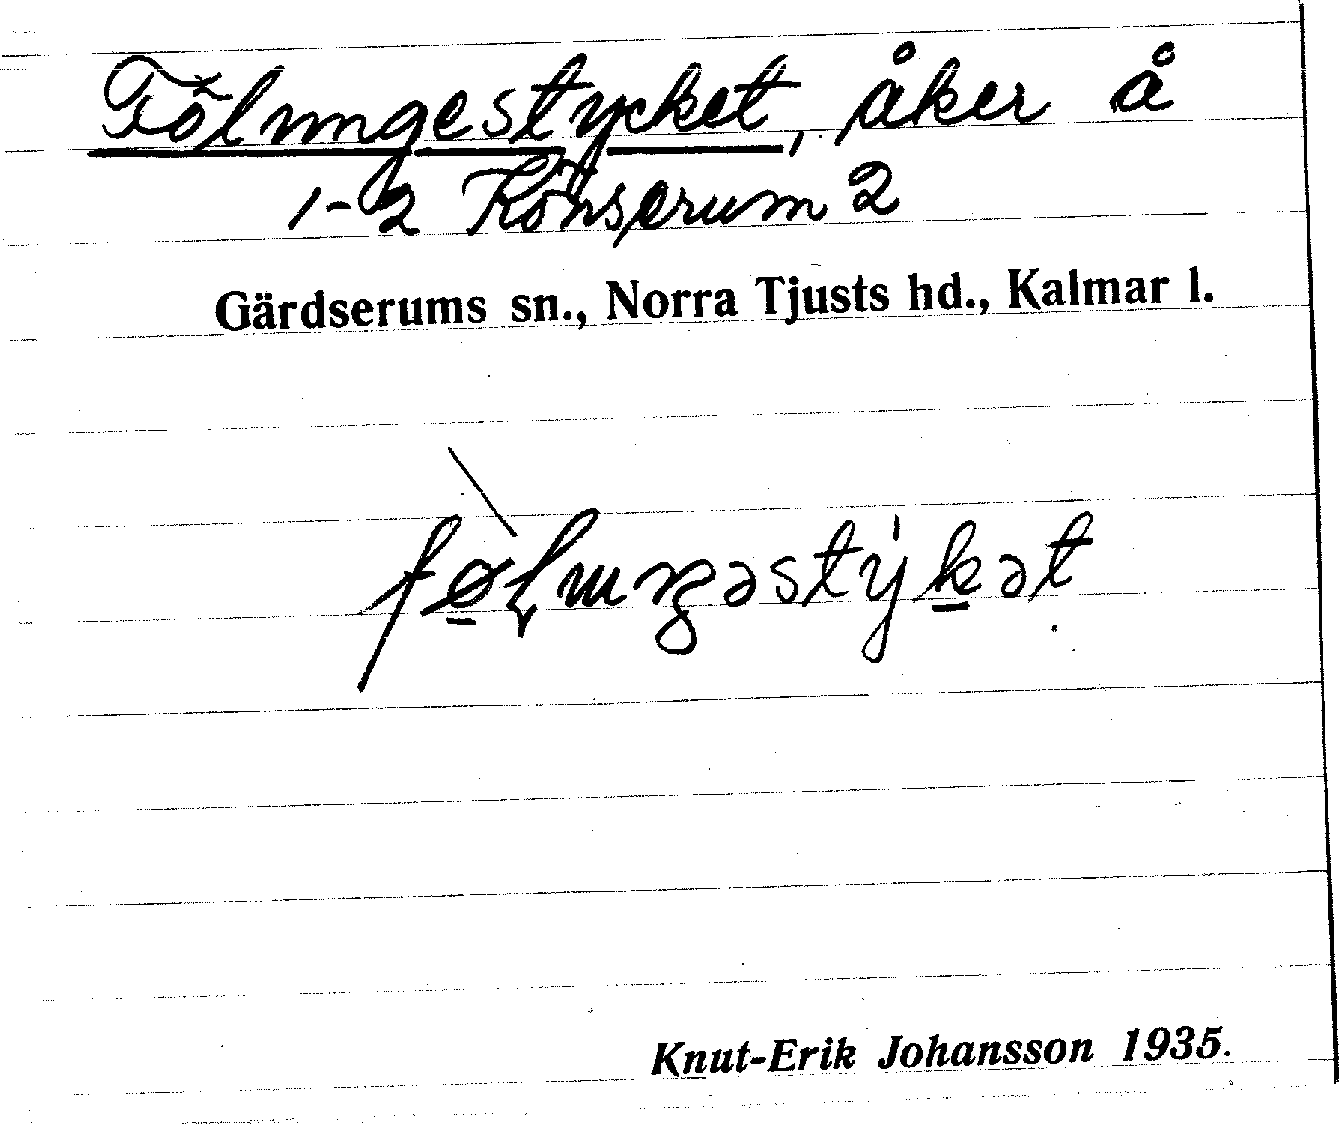 Fölungestycket, åker å
1-2 Könserum 2
Gärdserums sn., Norra Tjusts hd., Kalmar l.
Knut-Erik Johansson 1935.